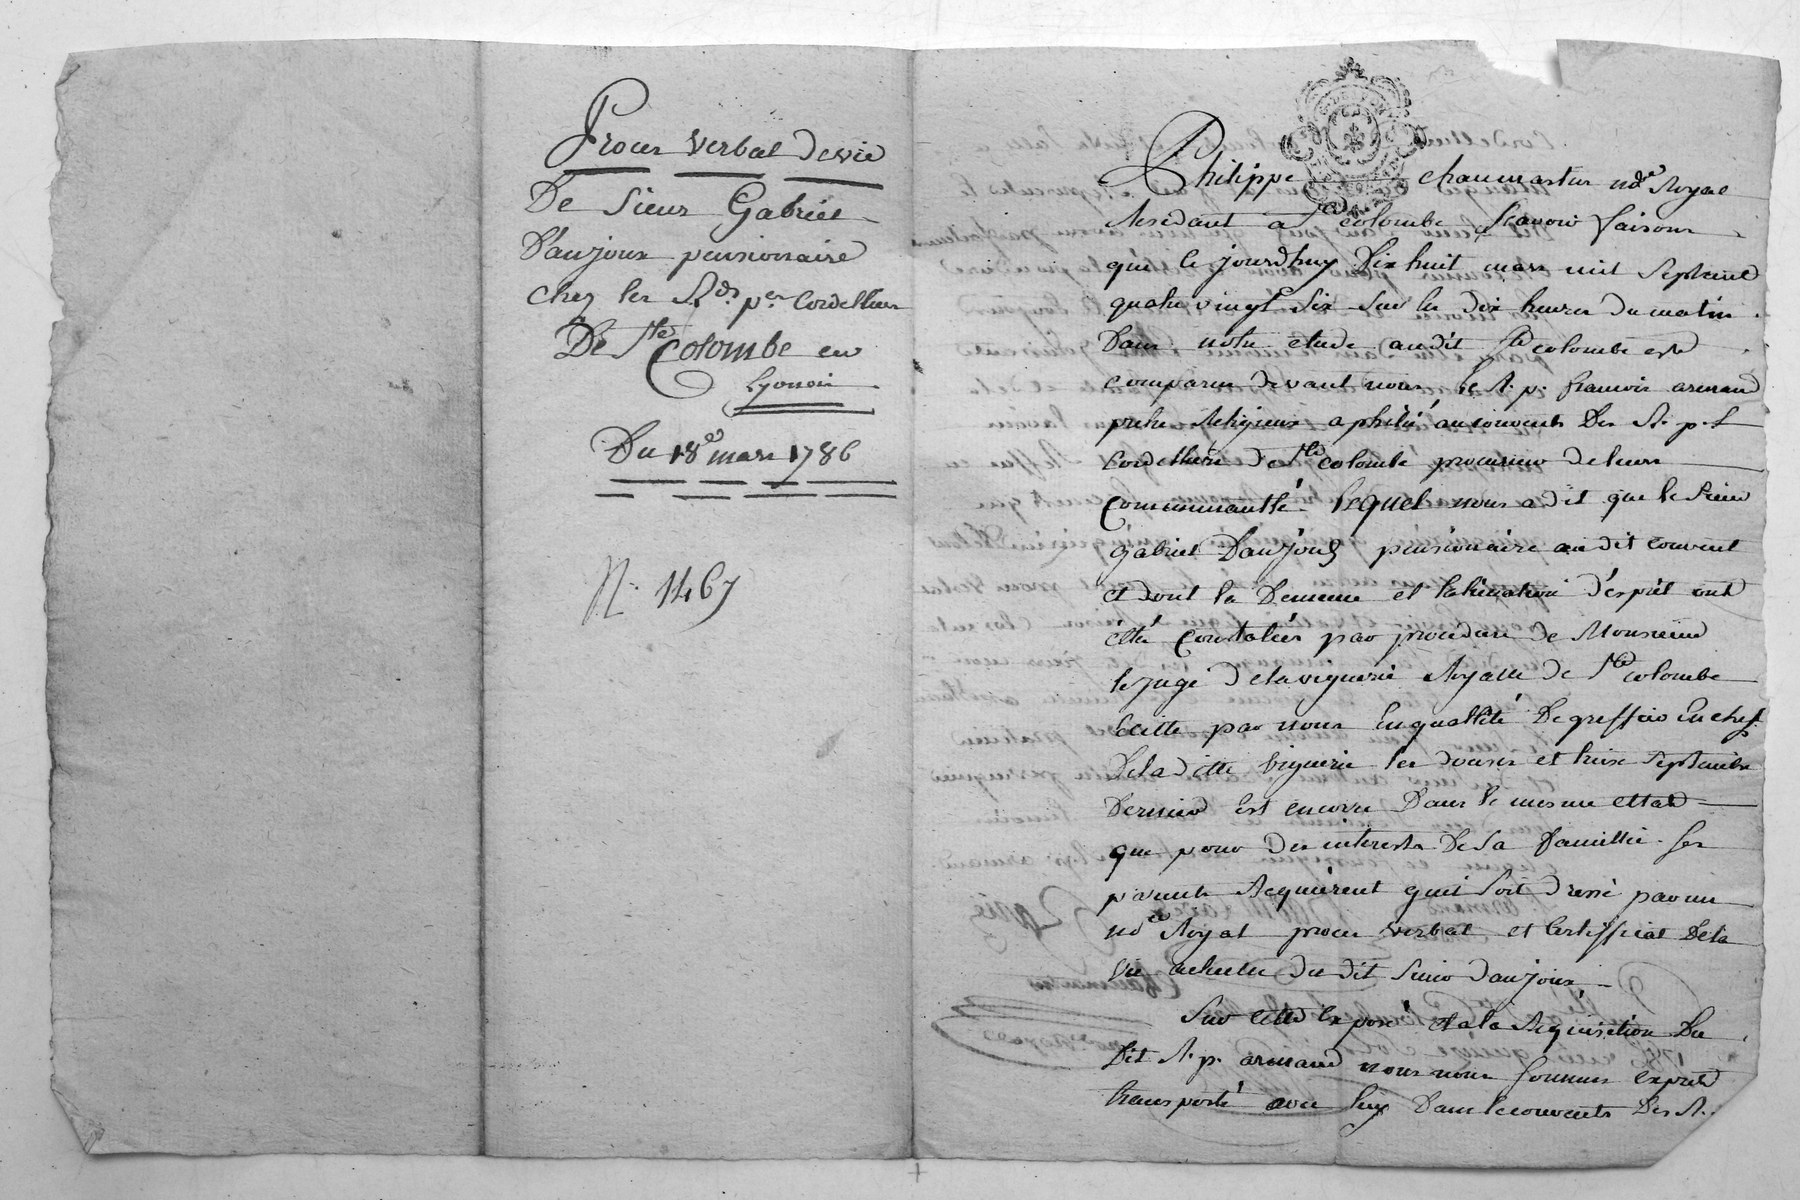 Proces verbal de vie
De Sieur Gabriel
Daujoux pensionnaire
chez les Rds. pes. Cordelliers
De Ste Colombe en
Lyonois
Du 18e mars 1786
N. 1467
Philippe chaumartin nore Royal
Residant a Ste colombe scavoir faisons
que le jourdhuy Dix huit mars mil sept cent
quatre vingt six sur les dix heures du matin
Dans notre etude audit Ste colombe est
comparu devant nous le R. p. francois armand
pretre Religieux aphilié au couvent Des R. p. 
Cordelliers de Ste colombe procureur de leur
Communauté lequel nous a dit que le sieur
gabriel Daujoux pensionaire audit couvent
et dont la Demence et lalienation d'esprit ont
étté constatées par procedure de Monsieur
le juge de la viguerie Royalle de Ste colombe
ecritte par nous en quallité De greffier en chef
De laditte viguerie les douze et treize septembre
Dernier est encorre Dans le mesme ettat
que pour des interests De sa famillie ses
parents Requierent quil soit dressé par un
nore Royal proces verbal et certifficat De la
vie actuelle du dit sieur daujoux
Sur cette exposé et a la Requisition Du
Dit R. p. armand nous nous sommes exprès
transporté avec luy Dans le couvents Des R.